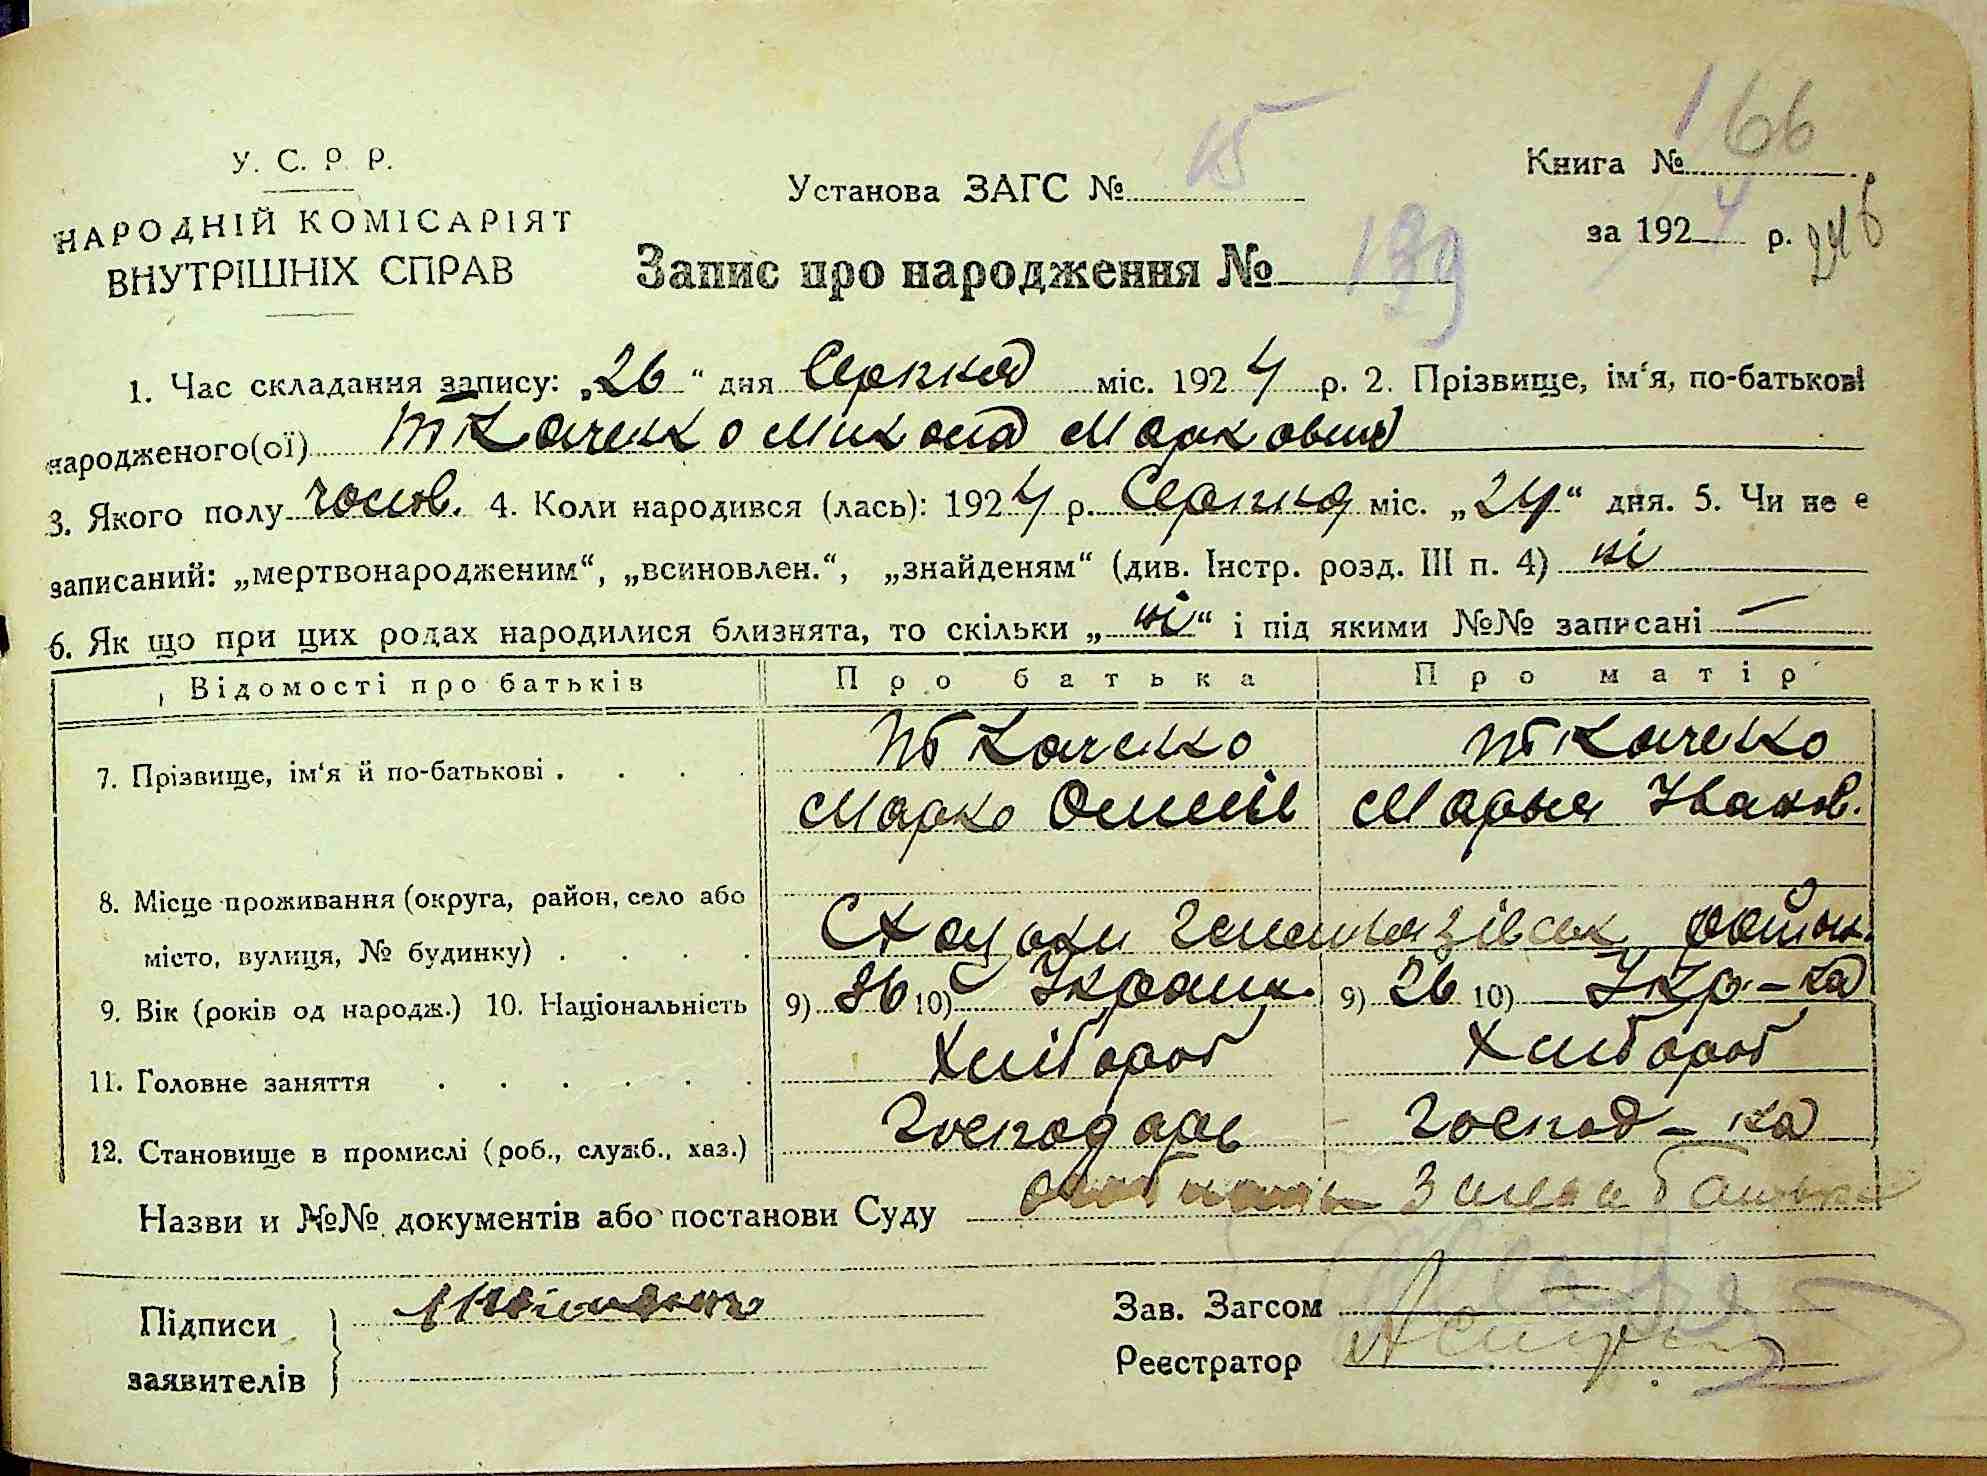 166
У. С. Р. Р.
НАРОДНІЙ КОМІСАРІЯТ
ВНУТРІШНІХ СПРАВ
Установа ЗАГС № 15
Книга №
за 1924 р.
246
Запис про народження № 139
1. Час складання запису: „26“ дня Серпня міс. 1924 р. 2. Прізвище, ім‘я, по-батькові
народженого(ої) Ткаченко Микола Маркович
3. Якого полу чолов. 4. Коли народився (лась): 1924 р. Серпня міс. „24“ дня. 5. Чи не є
записаний: „мертвонародженим“, „всиновлен.“, „знайденям“ (див. Інстр. розд. III п. 4) ні
6. Як що при цих родах народилися близнята, то скільки „ні“ і під якими №№ записані —
Відомості про батьків Про батька Про матір
7. Прізвище, ім‘я й по-батькові . . . .
Ткаченко Ткаченко
Марко Омелів Марья Іванов.
8. Місце проживання (округа, район, село або
місто, вулиця, № будинку) . . . .
Хоцьки Гельмязівськ район.
9. Вік (років од народж.) 10. Національність 9) 36 10) Україн. 9) 26 10) Укр-ка
11. Головне заняття . . . . . . Хлібороб Хлібороб
12. Становище в промислі (роб., служб., хаз.) Господарь Господ-ка
Назви и №№ документів або постанови Суду Заява батька
Підписи
заявителів
Зав. Загсом
Реєстратор